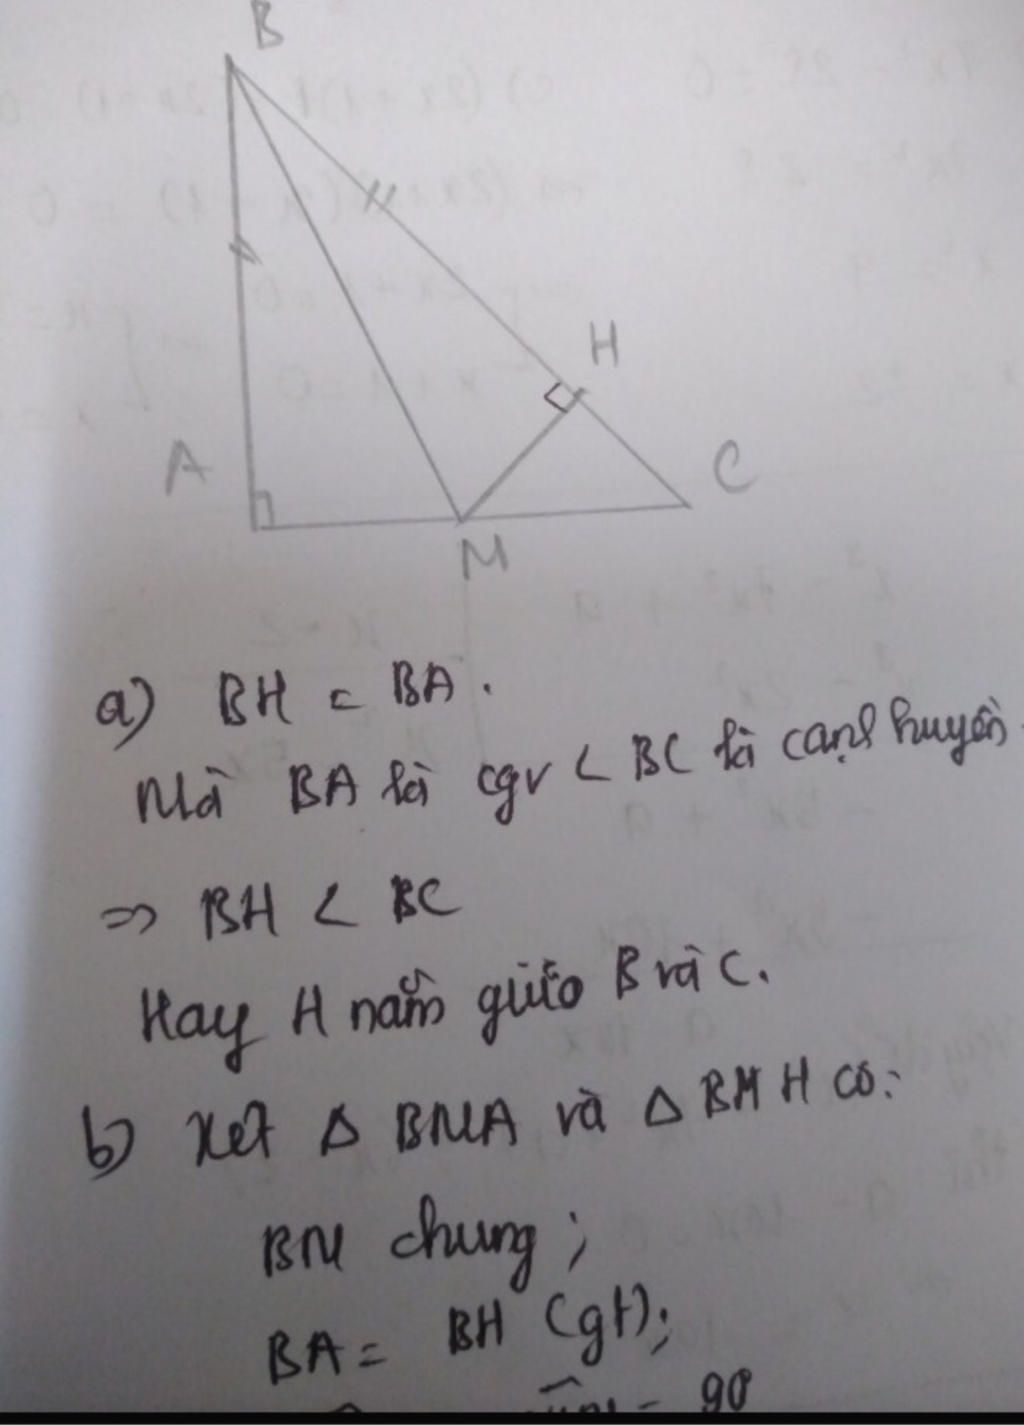 B
H
A
C
M
a) BH = BA.
Mà BA là cgv < BC là cạnh huyền.
=> BH < BC
Hay H nằm giữa B và C.
b) Xét Δ BMA và Δ BMH có:
BM chung;
BA = BH (gt);
= 90